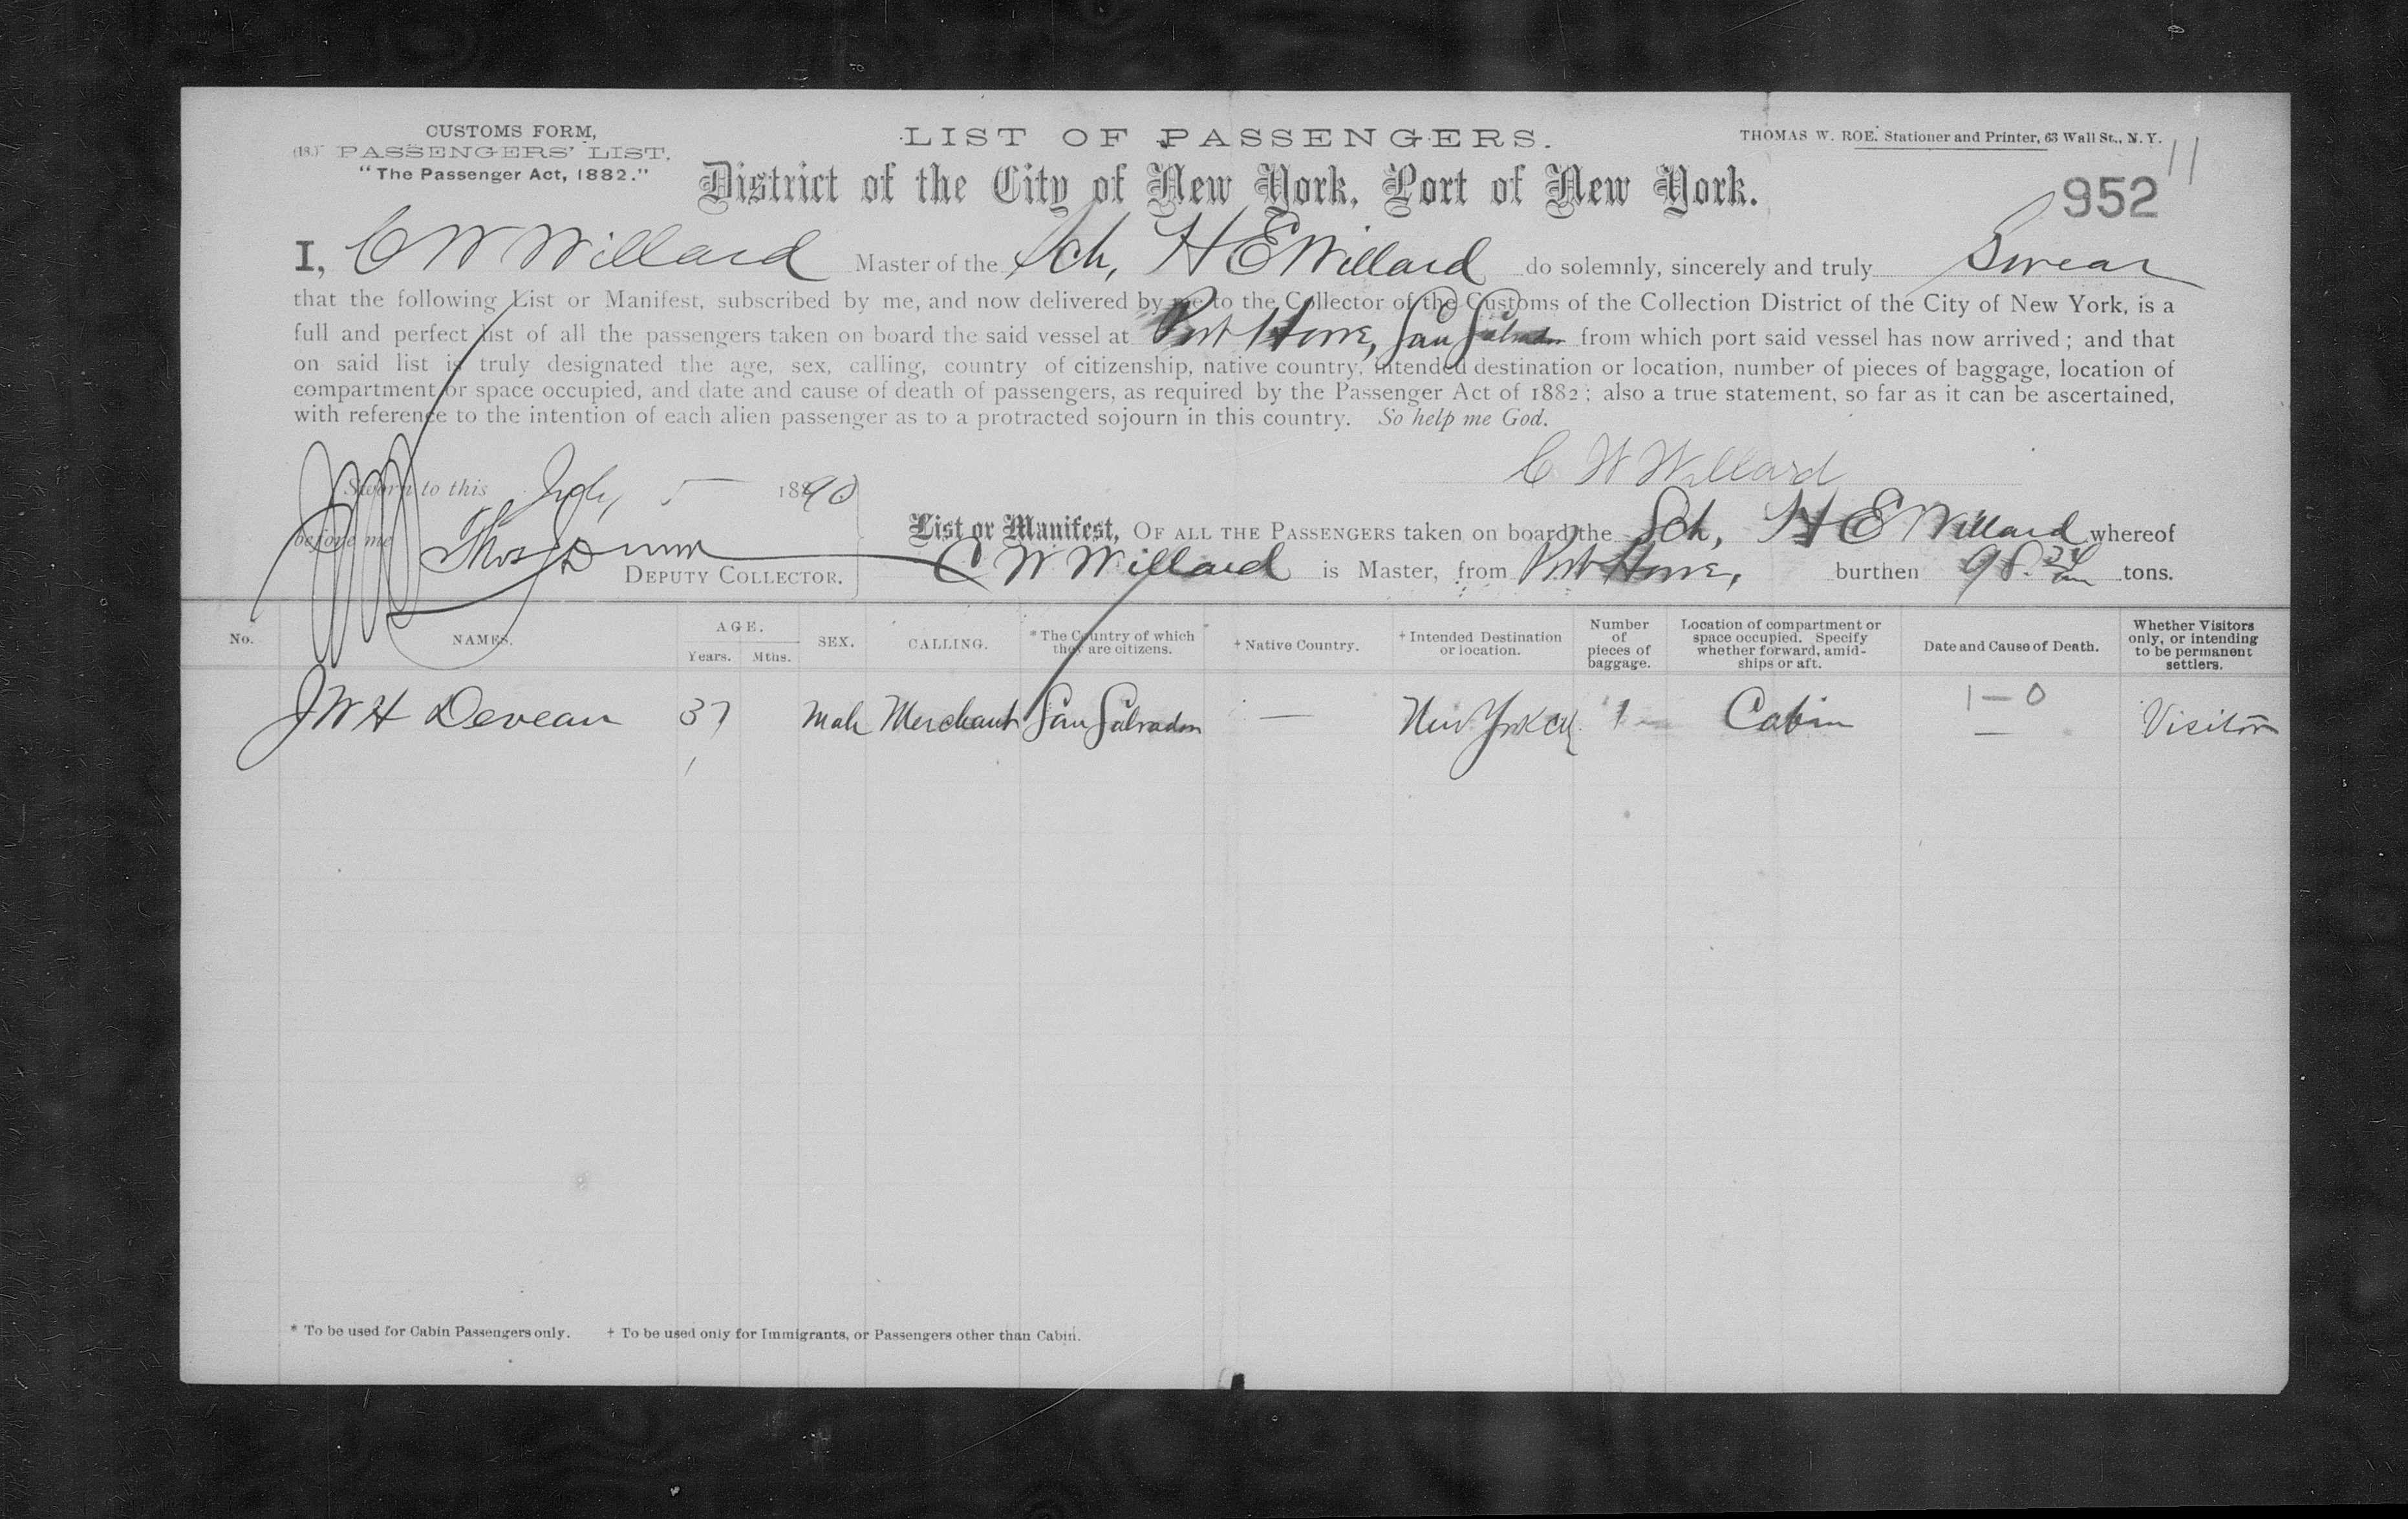 CUSTOMS FORM,
(18.) PASSENGERS' LIST.
"The Passenger Act, 1882."
LIST OF PASSENGERS.
THOMAS W. ROE. Stationer and Printer, 63 Wall St., N. Y.
11
District of the City of New York, Port of New York.
952
I, C W Willard Master of the Sch, H E Willard do solemnly, sincerely and truly Swear
that the following List or Manifest, subscribed by me, and now delivered by me to the Collector of the Customs of the Collection District of the City of New York, is a
full and perfect list of all the passengers taken on board the said vessel at Port Howe, San Salvador from which port said vessel has now arrived; and that
on said list is truly designated the age, sex, calling, country of citizenship, native country, intended destination or location, number of pieces of baggage, location of
compartment or space occupied, and date and cause of death of passengers, as required by the Passenger Act of 1882; also a true statement, so far as it can be ascertained,
with reference to the intention of each alien passenger as to a protracted sojourn in this country. So help me God.
C W Willard
Sworn to this July 5 1890
before me Thos Dunn
DEPUTY COLLECTOR.
List or Manifest, OF ALL THE PASSENGERS taken on board the Sch, H E Willard whereof
C W Willard is Master, from Port Howe, burthen 98. tons.
No. NAMES. AGE. Years. Mths. SEX. CALLING. * The Country of which they are citizens. † Native Country. † Intended Destination or location. Number of pieces of baggage. Location of compartment or space occupied. Specify whether forward, amidships or aft. Date and Cause of Death. Whether Visitors only, or intending to be permanent settlers.
J W H Deveau 37 Male Merchant San Salvador — New York City 1 Cabin 1 — 0 — Visitor
* To be used for Cabin Passengers only. † To be used only for Immigrants, or Passengers other than Cabin.